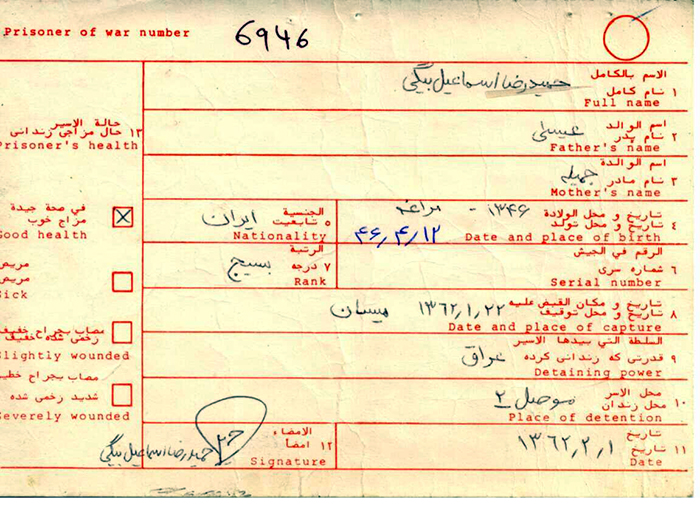 Prisoner of war number 6946
الاسم بالكامل
١ نام کامل حمیدرضا اسماعیل بیگی
Full name
اسم الوالد
٢ نام پدر عیسی
Father's name
اسم الوالدة
٣ نام مادر جمیله
Mother's name
تاريخ و محل الولادة
٤ تاریخ و محل تولد ۱۳۴۶ - مراغه
Date and place of birth ۴۶٫۴٫۱۲
الجنسية
٥ تابعیت ایران
Nationality
الرقم في الجيش
٦ شماره سری
Serial number
الرتبة
٧ درجه بسیج
Rank
تاريخ و مكان القبض عليه
٨ تاریخ و محل توقیف ۱۳۶۲٫۱٫۲۲ میسان
Date and place of capture
السلطة التي بيدها الاسير
٩ قدرتی که زندانی کرده عراق
Detaining power
محل الاسر
١٠ محل زندان موصل ۲
Place of detention
تاريخ
١١ تاریخ ۱۳۶۲٫۲٫۱
Date
الامضاء
١٢ امضأ حمیدرضا اسماعیل بیگی
Signature
حالة الاسير
١٣ حال مزاجی زندانی
Prisoner's health
في صحة جيدة
مزاج خوب
Good health
مريض
مریض
Sick
مصاب بجراح خفيفة
زخمی شده خفیف
Slightly wounded
مصاب بجراح
شدید زخمی شده
Severely wounded